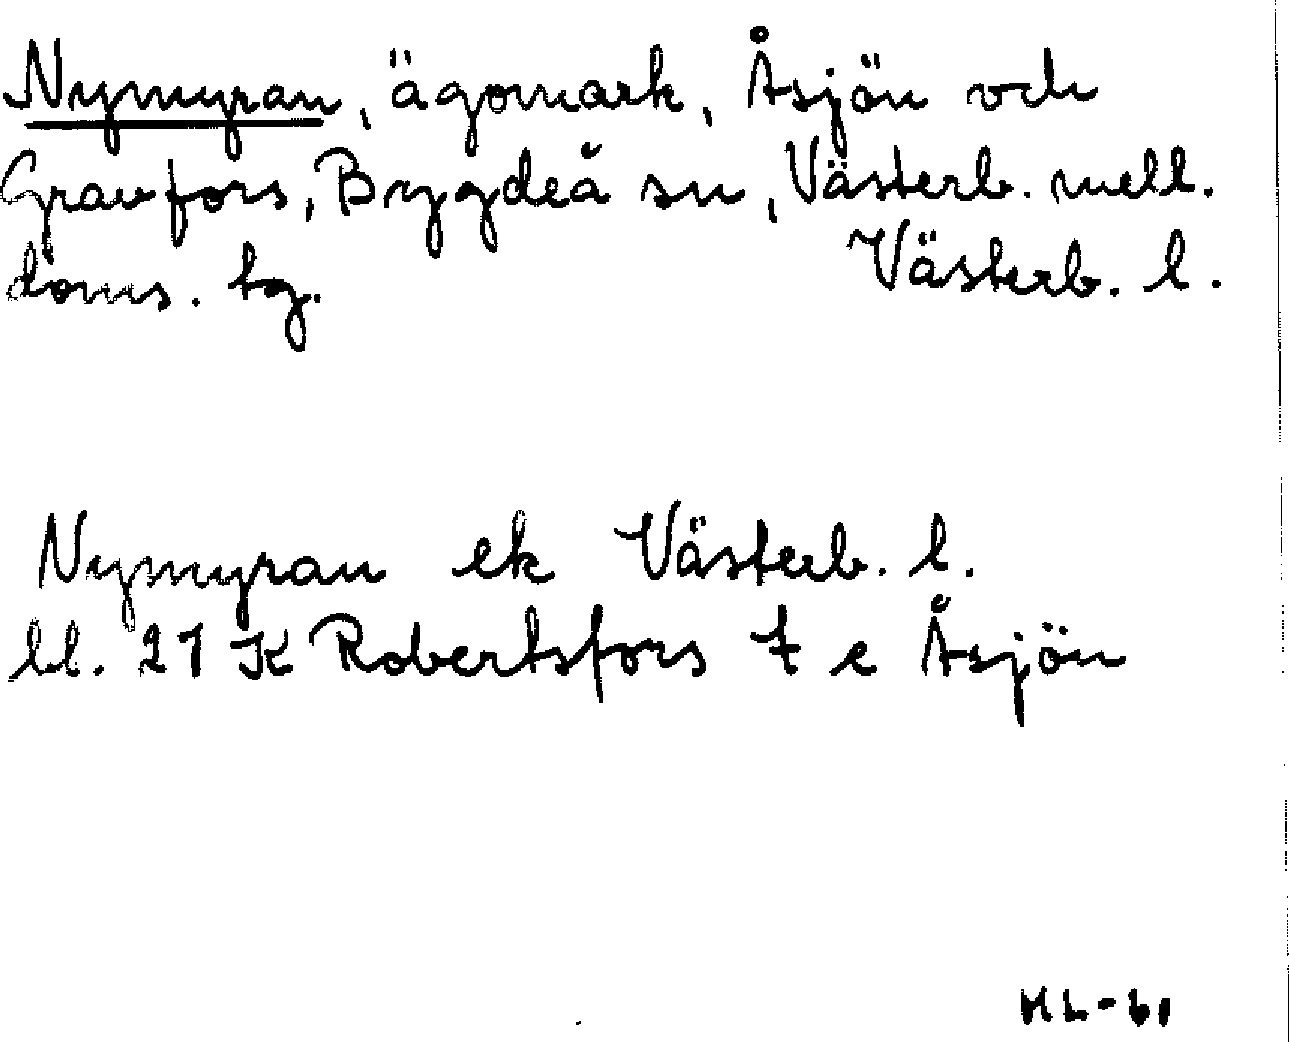 Nymyran, ägomark, Åsjön och
Gravfors, Bygdeå sn, Västerb. mell.
doms. tg. Västerb. l.
Nymyran ek Västerb. l.
bl. 21 K Robertsfors 7 e Åsjön
HL-61